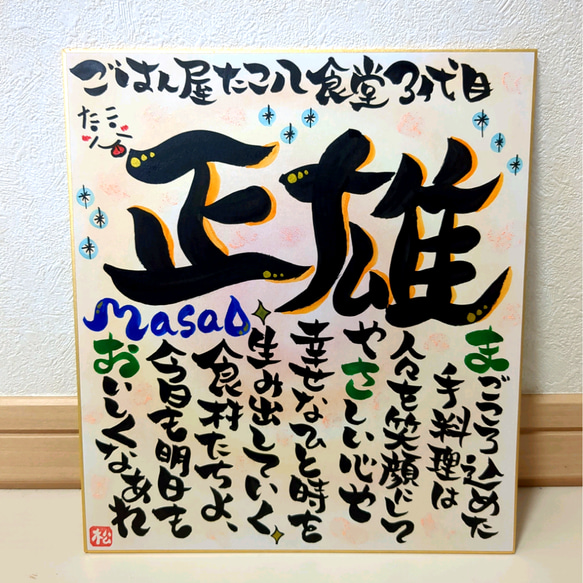 ごはん屋たこ八食堂3代目
正雄
Masao
まごころ込めた
手料理は
人々を笑顔にして
やさしい心や
幸せなひと時を
生み出していく
食材たちよ、
今日も明日も
おいしくなあれ
松